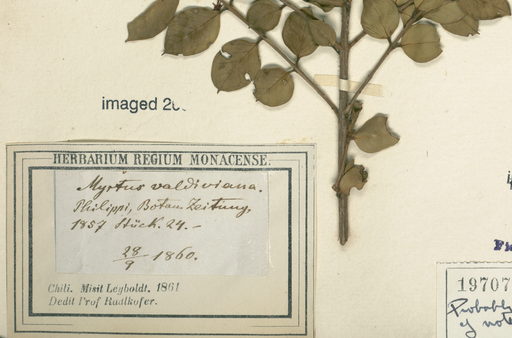 imaged
HERBARIUM REGIUM MONACENSE.
Myrtus valdiviana.
Philippi, Botan. Zeitung,
1857 Stück. 24. –
28/9 1860.
Chili. Misit Leyboldt. 1861
Dedit Prof Radlkofer.
19707
Probably
of